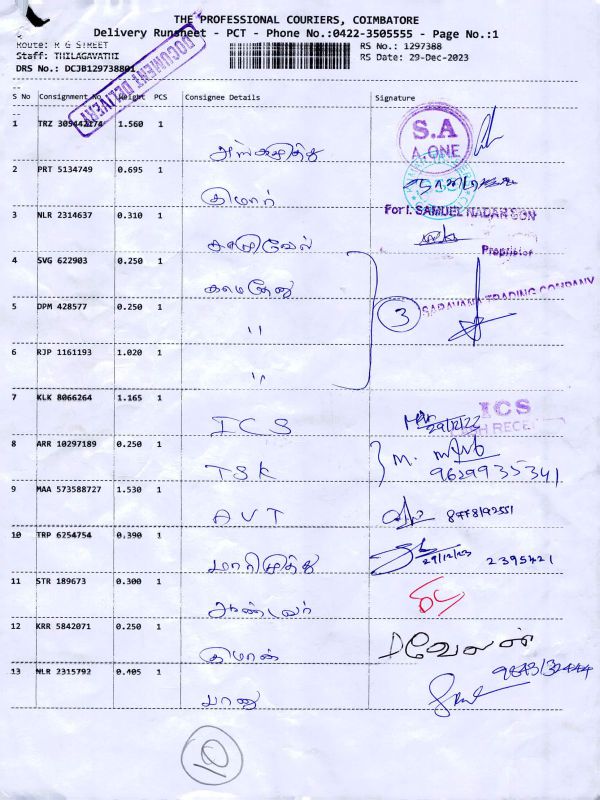 THE PROFESSIONAL COURIERS, COIMBATORE
Delivery Runsheet - PCT - Phone No.:0422-3505555 - Page No.:1
Route: R G STREET
RS No.: 1297388
Staff: THILAGAVATHI
RS Date: 29-Dec-2023
DRS No.: DCJB129738801
DOCUMENT DELIVERY
S No Consignment No Weight PCS Consignee Details Signature
1 TRZ 309442174 1.560 1
S.A
A.ONE
2 PRT 5134749 0.695 1
குமார்
3 NLR 2314637 0.310 1
For I. SAMUEL NADAR SON
Proprietor
சசிவேல்
4 SVG 622903 0.250 1
காமதேனு
SARAVANA TRADING COMPANY
3
5 DPM 428577 0.250 1
"
6 RJP 1161193 1.020 1
"
7 KLK 8066264 1.165 1
ICS
ICS
29/12/23
8 ARR 10297189 0.250 1
TSK
M.
9629935341
9 MAA 573588727 1.530 1
AVT
10 TRP 6254754 0.390 1
மாரிமுத்து
29/12/23 2395421
11 STR 189673 0.300 1
ஆண்டவர்
12 KRR 5842071 0.250 1
D வேலன்
13 NLR 2315792 0.405 1
பானு
10